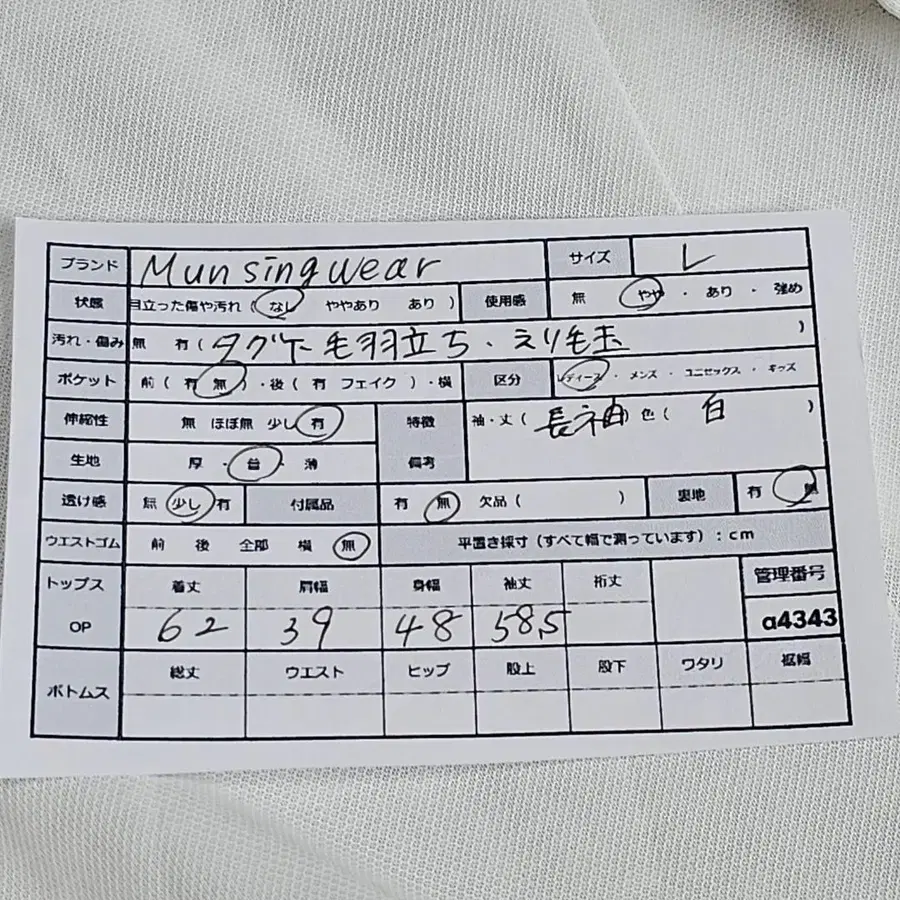 ブランド Munsingwear サイズ L
状態 目立った傷や汚れ ( なし ややあり あり ) 使用感 無 やや ・ あり ・ 強め
汚れ・傷み 無 有 ( タグ下毛羽立ち・えり毛玉 )
ポケット 前 ( 有 無 ) ・後 ( 有 フェイク ) ・横 区分 レディース ・ メンズ ・ ユニセックス ・ キッズ
伸縮性 無 ほぼ無 少し 有 特徴 袖・丈 ( 長袖 ) 色 ( 白 )
生地 厚 ・ 普 ・ 薄 備考
透け感 無 少し 有 付属品 有 無 欠品 ( ) 裏地 有 無
ウエストゴム 前 後 全部 横 無 平置き採寸 (すべて幅で測っています) : cm
トップス 着丈 肩幅 身幅 袖丈 裄丈 管理番号
OP 62 39 48 58.5 a4343
ボトムス 総丈 ウエスト ヒップ 股上 股下 ワタリ 裾幅